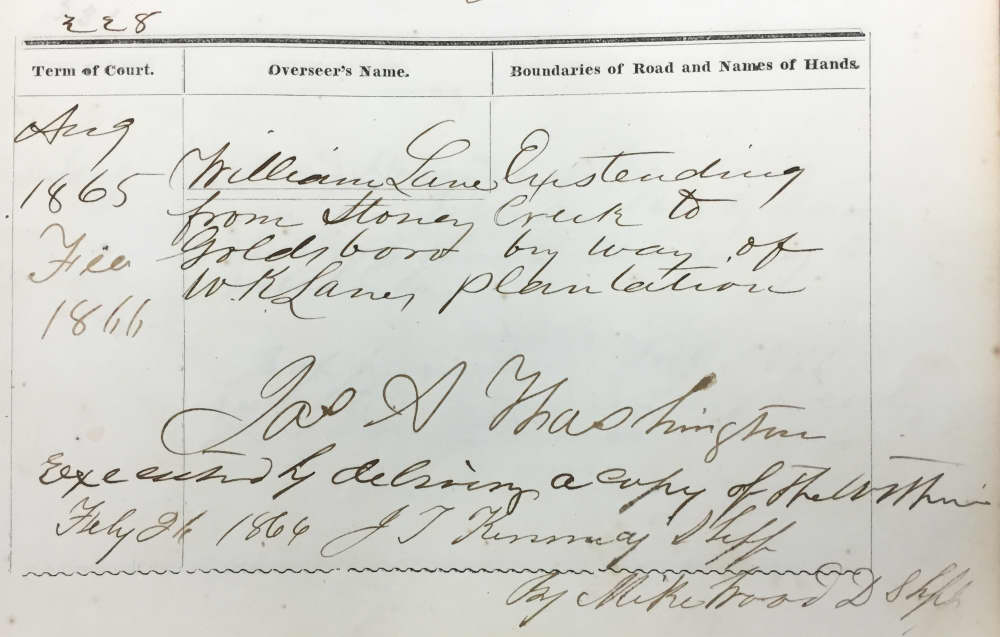 228
Term of Court. Overseer's Name. Boundaries of Road and Names of Hands.
Aug
1865 William Lane Exstending
from Stoney Creek to
Feb Goldsboro by way of
W. K Lanes plantation
1866
Jas A Washington
Executed by delivering a copy of the within
Feby 26 1866 J T Kennedy Shff
By Mike Wood D Shff